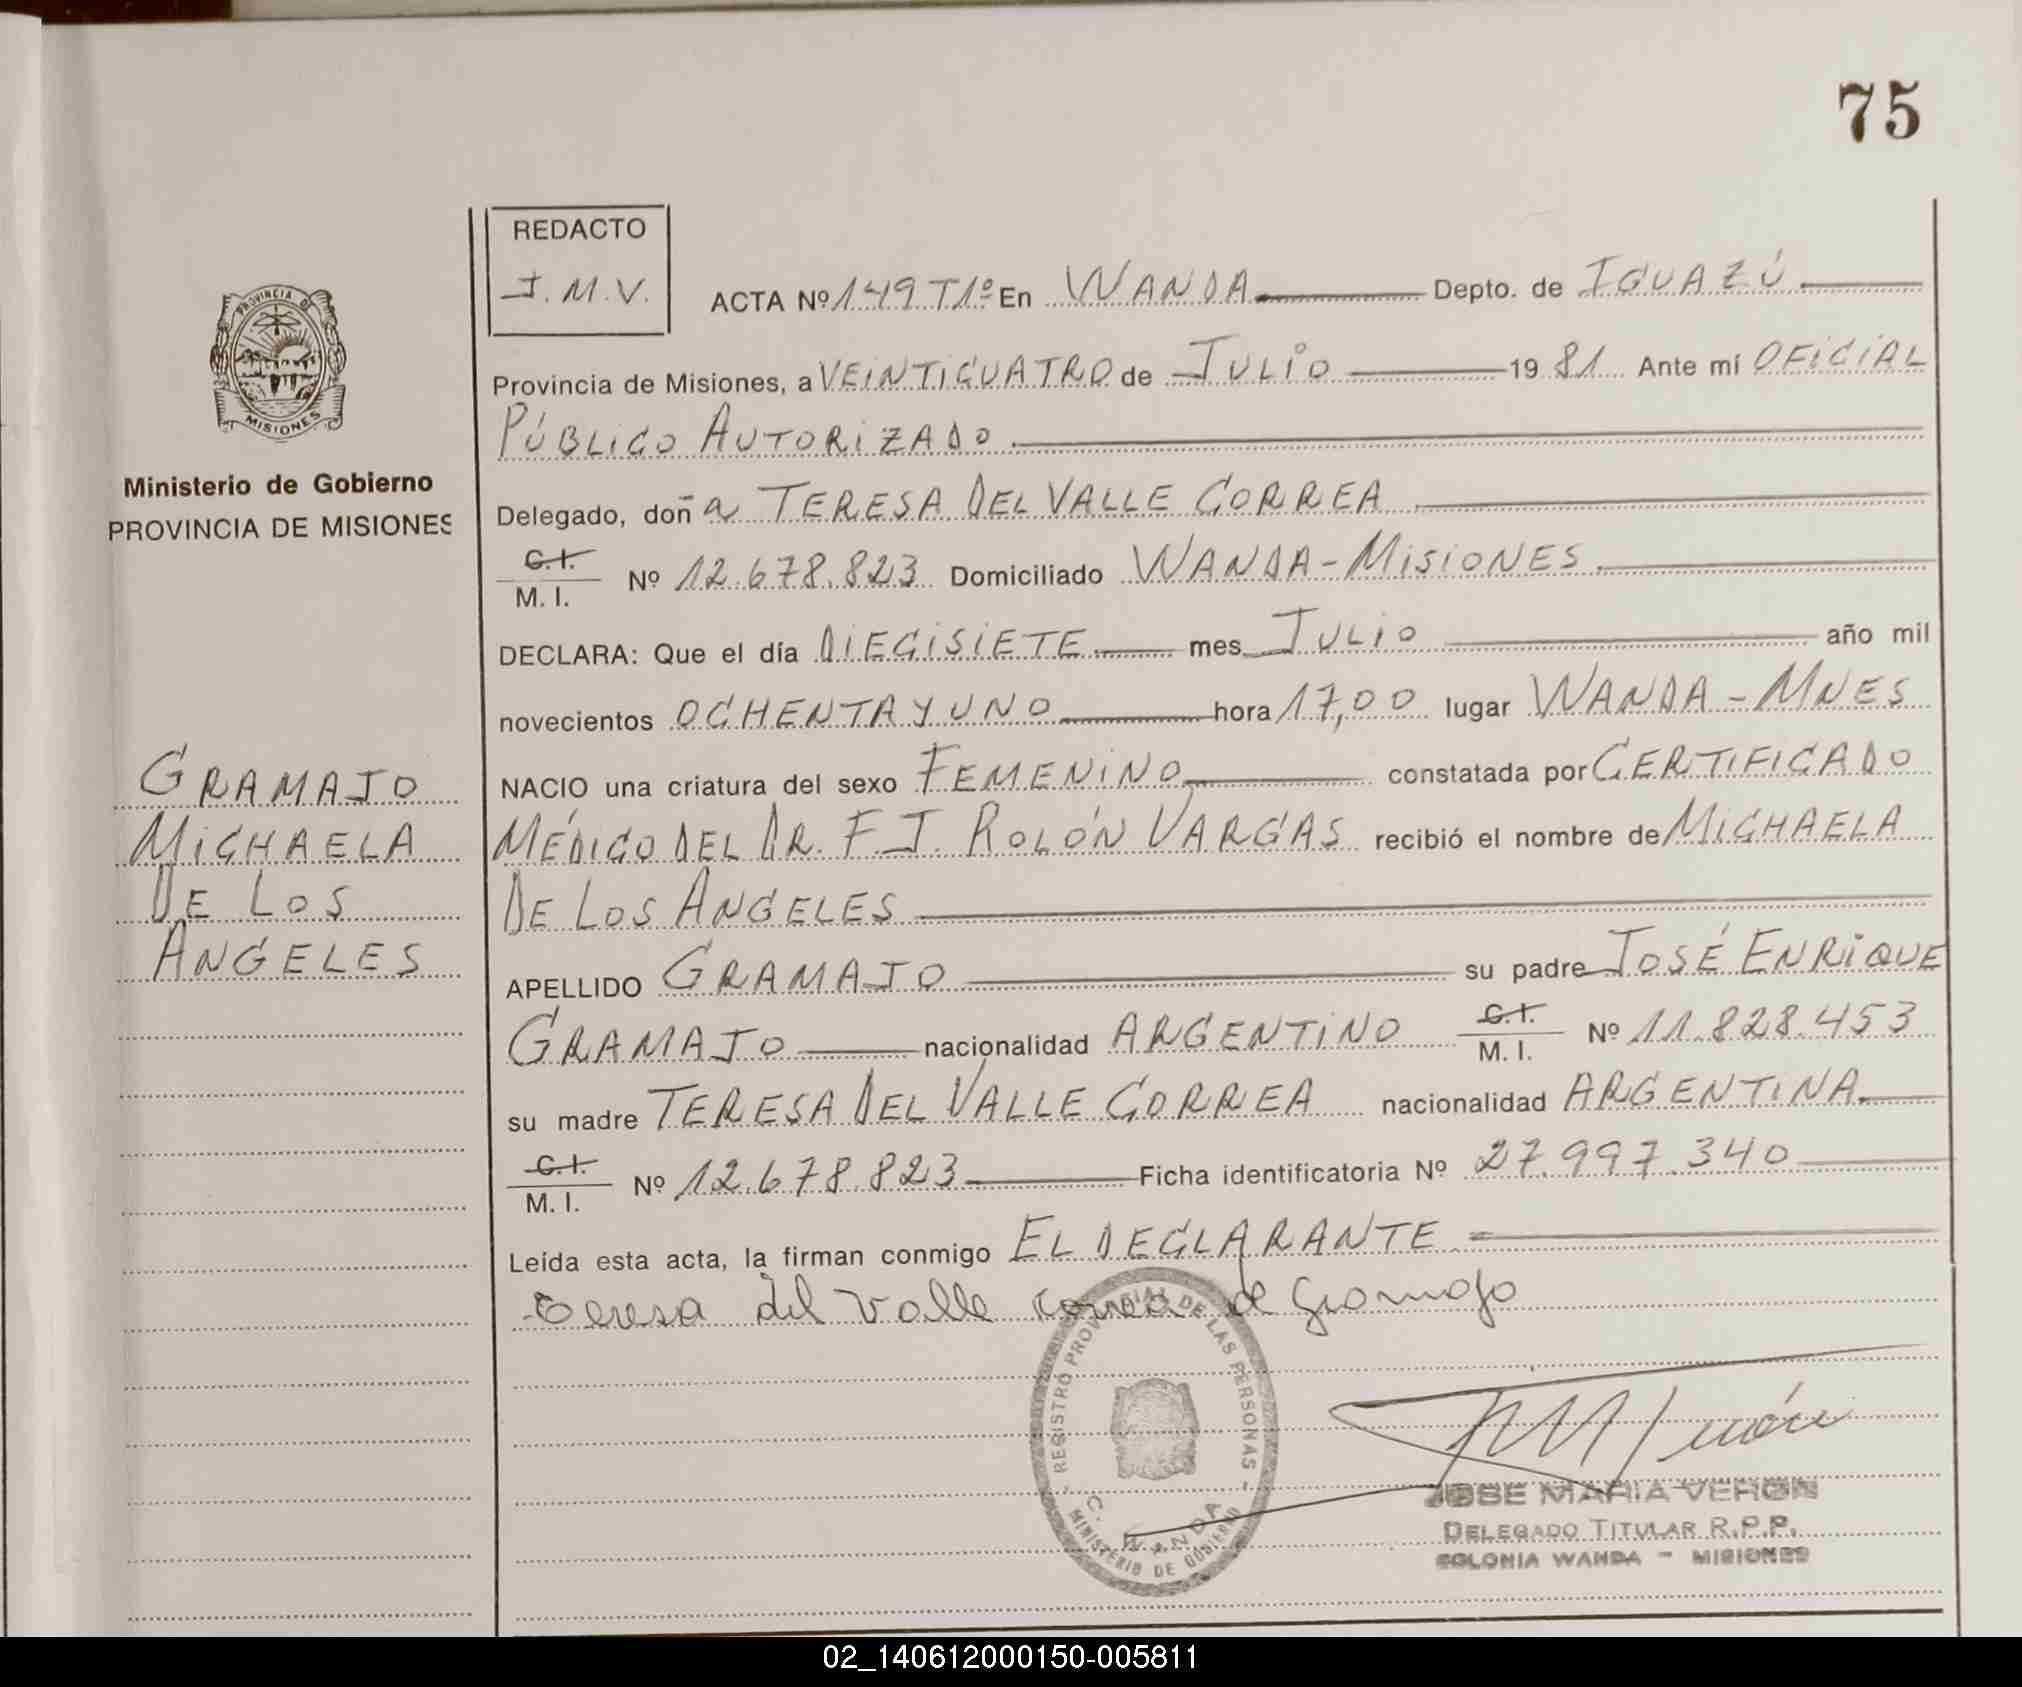 75
REDACTO
J. M. V.
ACTA Nº 149 T1º En WANDA Depto. de IGUAZÚ
Provincia de Misiones, a VEINTICUATRO de JULIO 19 81 Ante mí OFICIAL
PÚBLICO AUTORIZADO
Delegado, doña TERESA DEL VALLE CORREA
C. I.
M. I. Nº 12.678.823 Domiciliado WANDA - MISIONES
DECLARA: Que el día DIECISIETE mes JULIO año mil
novecientos OCHENTA Y UNO hora 17,00 lugar WANDA - MNES
NACIO una criatura del sexo FEMENINO constatada por CERTIFICADO
MÉDICO DEL DR. F. J. ROLÓN VARGAS recibió el nombre de MICHAELA
DE LOS ANGELES
APELLIDO GRAMAJO su padre JOSÉ ENRIQUE
GRAMAJO nacionalidad ARGENTINO C. I. M. I. Nº 11.828.453
su madre TERESA DEL VALLE CORREA nacionalidad ARGENTINA
C. I.
M. I. Nº 12.678.823 Ficha identificatoria Nº 27.997.340
Leída esta acta, la firman conmigo EL DECLARANTE
teresa del Valle correa de Gramajo
PROVINCIA DE
MISIONES
Ministerio de Gobierno
PROVINCIA DE MISIONES
GRAMAJO
MICHAELA
DE LOS
ANGELES
REGISTRO PROVINCIAL DE LAS PERSONAS
C. WANDA
MINISTERIO DE GOBIERNO
JOSE MARIA VERON
DELEGADO TITULAR R.P.P.
COLONIA WANDA - MISIONES
02_140612000150-005811